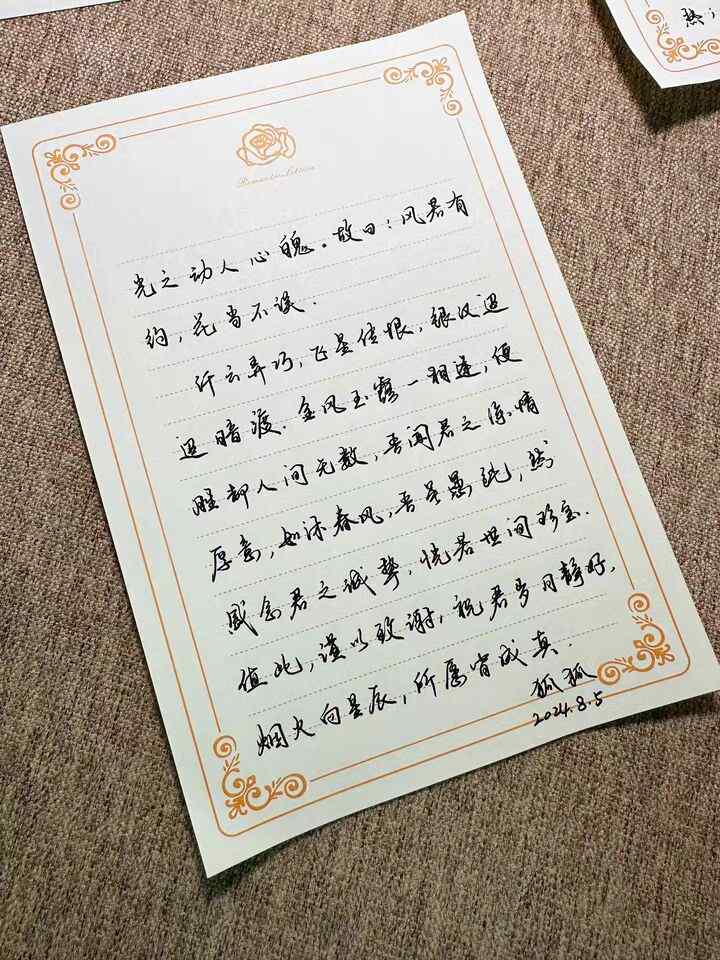 Romantic Letter
光之动人心魄。故曰：风若有
约，花当不误.
纤云弄巧，飞星传恨，银汉迢
迢暗渡. 金风玉露一相逢，便
胜却人间无数，吾闻君之深情
厚意，如沐春风，吾虽愚钝，然
感念君之诚挚，恍若世间珍宝.
值此，谨以致谢，祝君岁月静好，
烟火向星辰，所愿皆成真.
狐狐
2024.8.5
热